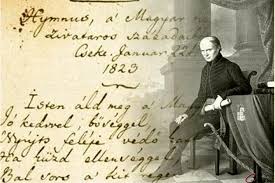 Hymnus, á Magyar n
zivataros századai
Cseke, Januar 22d
1823
Isten áld meg a M
Jó kedvvel, bőséggel
Nyújts feléje védő kar
Ha küzd ellenséggel
Bal sors a kit régen